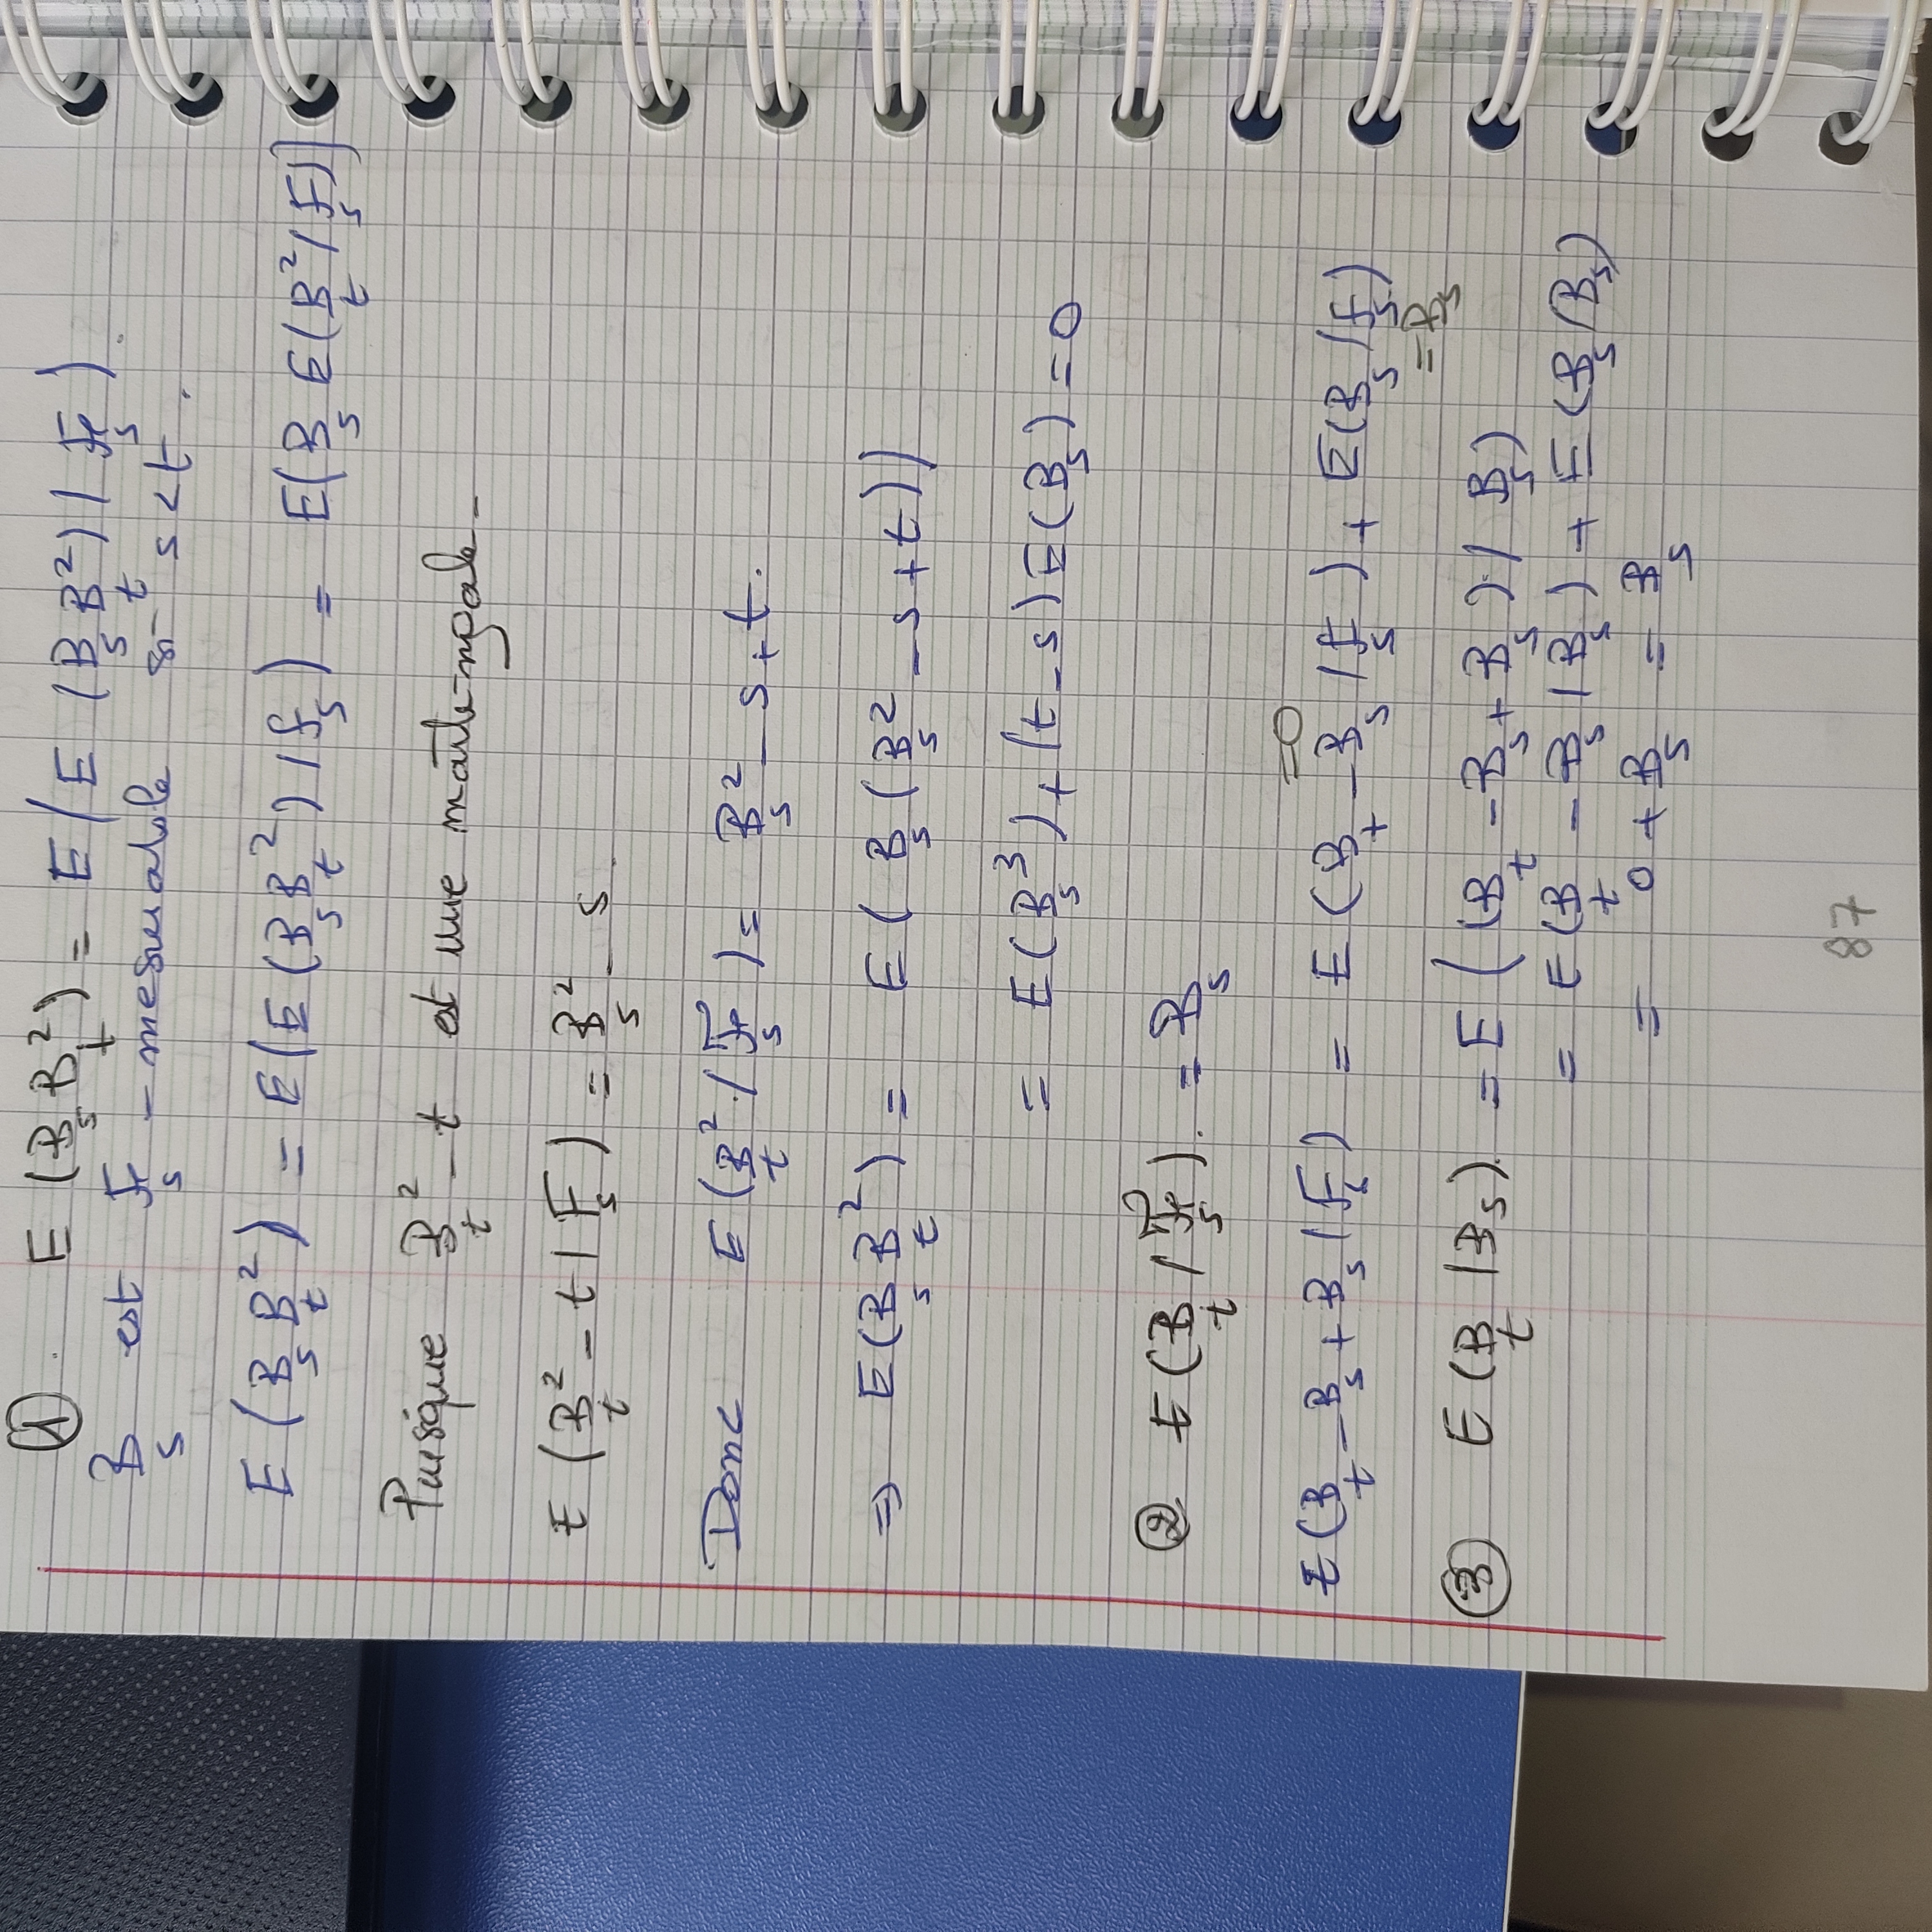 ① . E (B_s B_t^2) = E ( E (B_s B_t^2) / F_s ) .
B_s est F_s - mesurable si s < t .
E ( B_s B_t^2 ) = E ( E ( B_s B_t^2 ) / F_s ) = E ( B_s E ( B_t^2 / F_s ) ]
Puisque B_t^2 - t est une martingale -
E ( B_t^2 - t | F_s ) = B_s^2 - s .
Donc E ( B_t^2 / F_s ) = B_s^2 - s + t .
=> E ( B_s B_t^2 ) = E ( B_s ( B_s^2 - s + t ) )
= E ( B_s^3 ) + ( t - s ) E ( B_s ) = 0
② E ( B_t / F_s ) . = B_s
= 0
E ( B_t - B_s + B_s / F_s ) = E ( B_t - B_s / F_s ) + E ( B_s / F_s )
= B_s
③ E ( B_t / B_s ) . = E ( ( B_t - B_s + B_s ) / B_s )
= E ( B_t - B_s / B_s ) + E ( B_s / B_s )
= 0 + B_s = B_s
87